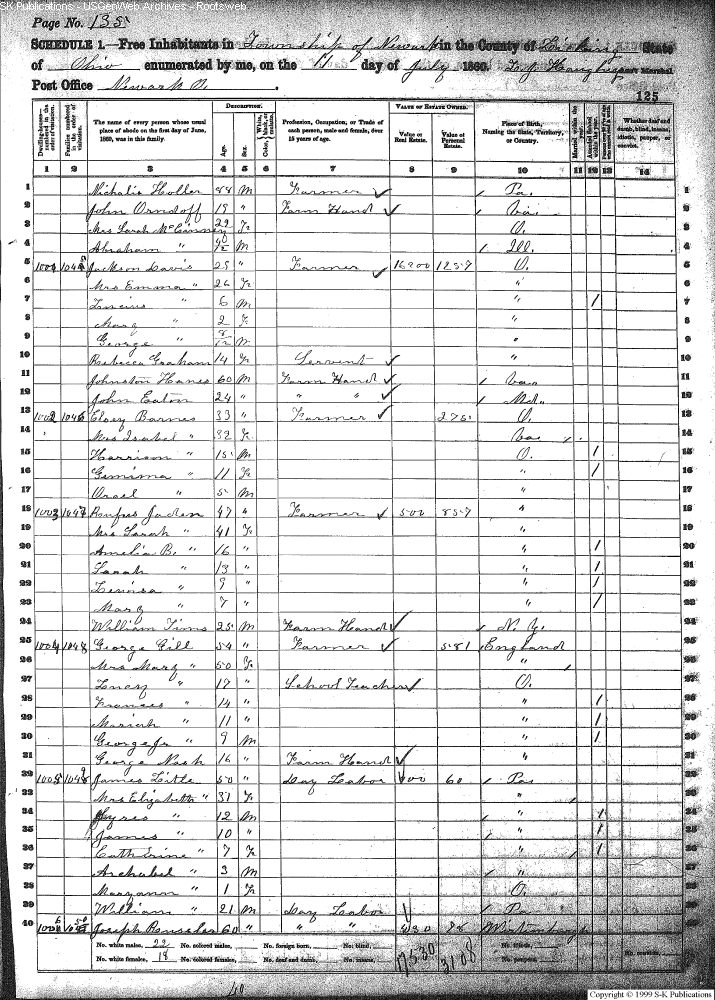 SK Publications - USGenWeb Archives - Rootsweb
Page No. 135
SCHEDULE 1.—Free Inhabitants in Township of Newark in the County of Licking State
of Ohio enumerated by me, on the 11 day of July 1860.
Post Office Newark O.
125
Dwelling-houses—numbered in the order of visitation.
Families numbered in the order of visitation.
The name of every person whose usual place of abode on the first day of June, 1860, was in this family.
DESCRIPTION.
Age.
Sex.
Color,
Profession, Occupation, or Trade of each person, male and female, over 15 years of age.
VALUE OF ESTATE OWNED.
Value of Real Estate.
Value of Personal Estate.
Place of Birth, Naming the State, Territory, or Country.
Married within the year.
Whether deaf and dumb, blind, insane, idiotic, pauper, or convict.
1 2 3 4 5 6 7 8 9 10 11 12 13 14
1 Holler 88 M Farmer Pa. 1
2 John Orndoff 19 " Farm Hand Va. 2
3 Mrs Sarah McCinney 29 F O. 3
4 Abraham " M Ill. 4
5 1001 Jackson Davis 29 " Farmer 16200 1257 O. 5
6 Mrs Emma " 26 F " 6
7 Lucius " 6 M " / 7
8 Mary " 2 F " 8
9 George " 8/12 M " 9
10 Rebecca Graham 14 F Servent 10
11 Johnston Hanes 60 M Farm Hand Va 11
12 John Eaton 24 " " " Md. 12
13 1002 1046 Barnes 33 " Farmer 275 O. 13
14 Mrs Isabel " 32 F Va 14
15 Harrison " 15 M O. / 15
16 Gemima " 11 F " / 16
17 " 5 M " 17
18 1003 1047 Rufus 47 " Farmer 500 857 " 18
19 Mrs Sarah " 41 F " 19
20 Amelia B. " 16 " " / 20
21 Sarah " 13 " " / 21
22 " 9 " " / 22
23 Mary " 7 " " / 23
24 William Tims 25 M Farm Hand N. Y. 24
25 1004 1048 George Gill 54 " Farmer 581 England 25
26 Mrs Mary " 50 F " 26
27 " 17 " School Teacher O. 27
28 Frances " 14 " " / 28
29 Mariah " 11 " " / 29
30 George Jr " 9 M " / 30
31 George Nash 16 " Farm Hand " 31
32 1005 1049 James Little 50 " Day Labor 60 Pa 32
33 Mrs Elizabeth " 31 F " 33
34 " 12 M " / 34
35 James " 10 " " / 35
36 Catherine " 7 F " / 36
37 " 3 M " 37
38 Maryann " 1 F O. 38
39 William " 21 M Day Labor Pa 39
40 Joseph 60 " " " 40
No. white males, 22 No. colored males, No. foreign born, No. blind,
No. white females, 18 No. colored females, No. deaf and dumb, No. insane, No. idiotic, No. paupers, No. convicts,
17530 3108
Copyright © 1999 S-K Publications